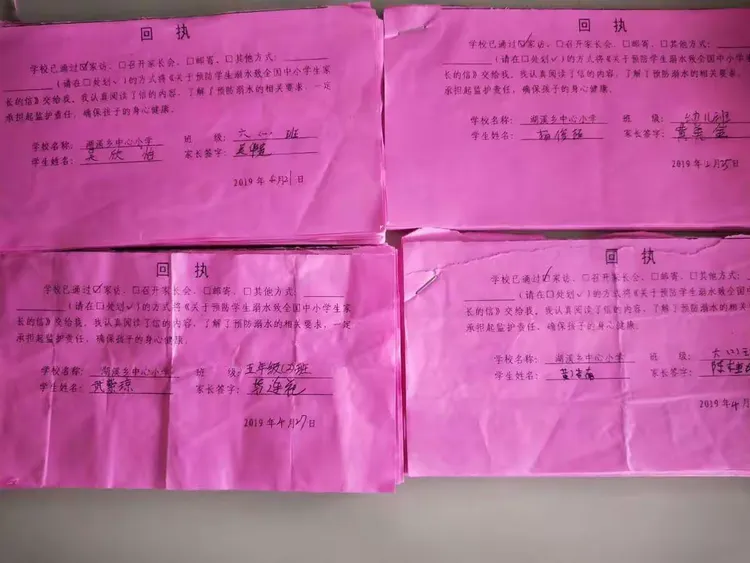 回 执
学校已通过☑家访、□召开家长会、□邮寄、□其他方式:
(请在□处划✓)的方式将《关于预防学生溺水致全国中小学生家
长的信》交给我,我认真阅读了信的内容,了解了预防溺水的相关要求,一定
承担起监护责任,确保孩子的身心健康。
学校名称: 湖溪乡中心小学 班 级: 六(1)班
学生姓名: 吴欣怡 家长签字:
2019年4月21日
回 执
学校已通过☑家访、□召开家长会、□邮寄、□其他方式:
(请在□处划✓)的方式将《关于预防学生溺水致全国
长的信》交给我,我认真阅读了信的内容,了解了预防溺水的相关要求,
承担起监护责任,确保孩子的身心健康。
学校名称: 湖溪乡中心小学 班 级: 幼儿班
学生姓名: 家长签字:
2019年4月25日
回 执
学校已通过☑家访、□召开家长会、□邮寄、□其他方式:
(请在□处划✓)的方式将《关于预防学生溺水致全国中小学生家
长的信》交给我,我认真阅读了信的内容,了解了预防溺水的相关要求,一定
承担起监护责任,确保孩子的身心健康。
学校名称: 湖溪乡中心小学 班 级: 五年级(2)班
学生姓名: 武紫琼 家长签字:
2019年4月27日
回 执
学校已通过☑家访、□召开家长会、□邮寄、□其他方式:
(请在□处划✓)的方式将《关于预防学生溺水致全国
长的信》交给我,我认真阅读了信的内容,了解了预防溺水的相关要求
承担起监护责任,确保孩子的身心健康。
学校名称: 湖溪乡中心小学 班 级: 六
学生姓名: 家长签字:
2019年4月